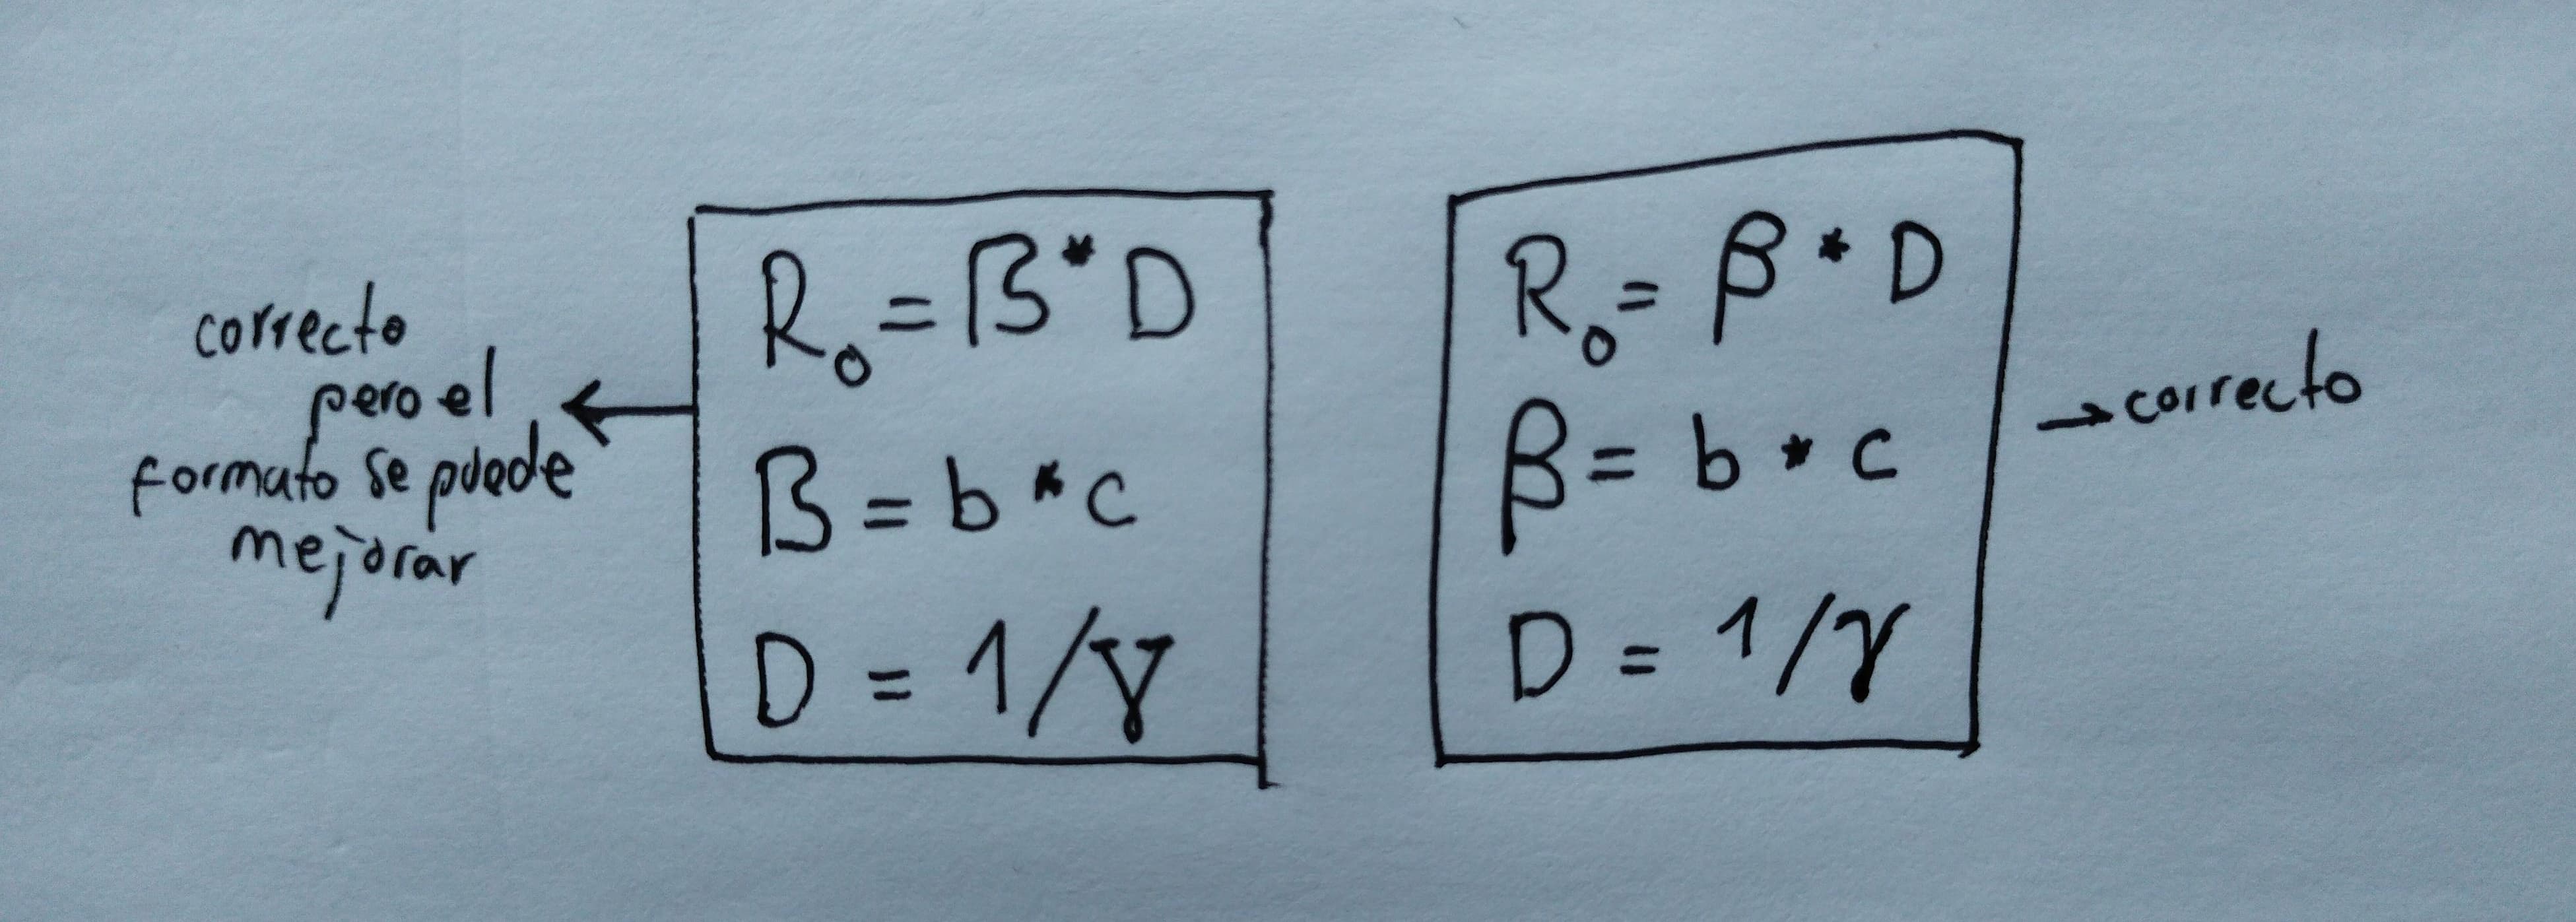 correcto
pero el
formato se puede
mejorar
R₀ = β * D
β = b * c
D = 1/γ
R₀ = β * D
β = b * c
D = 1/γ
correcto